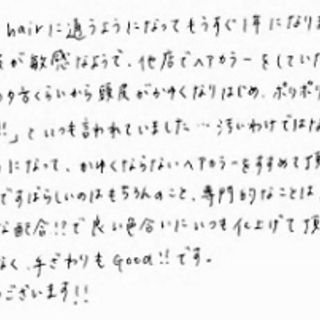 hairに通うようになってもうすぐ1年になりま
が敏感なようで、他店でヘアカラーをしていた
夕方くらいから頭皮がかゆくなりはじめ、ポリポリ
!!」といつも言われていました…汚いわけではな
になって、かゆくならないヘアカラーをすすめて頂
ですばらしいのはもちろんのこと、専門的なことは
な配合!?で良い色合いにいつも仕上げて頂
なく、手ざわりもGood!!です。
ございます!!